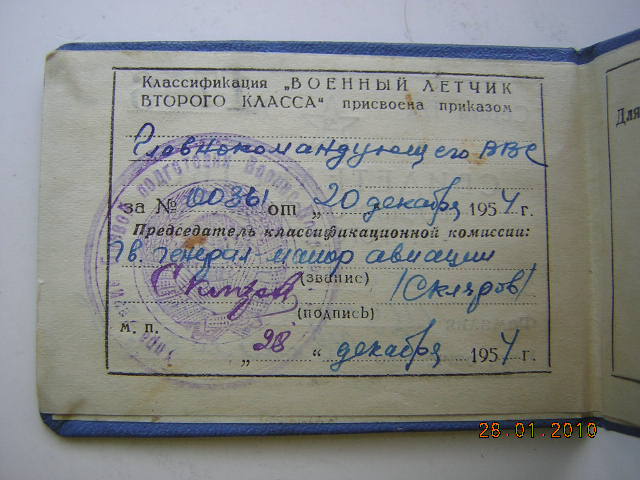 Классификация „ВОЕННЫЙ ЛЕТЧИК
ВТОРОГО КЛАССА“ присвоена приказом
Главнокомандующего ВВС
за № 00361 от „20 декабря 1954 г.
Председатель классификационной комиссии:
Гв. генерал-майор авиации
(звание) (Скляров)
(подпись)
м. п.
„28“ декабря 1954 г.
Для
28.01.2010